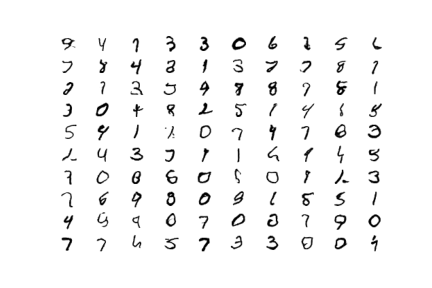 9 4 7 3 3 0 6 2 5 6
7 8 4 3 1 3 7 7 8 7
2 7 2 5 9 8 8 7 8 1
3 0 4 8 2 5 1 4 1 5
5 9 1 0 7 4 7 6 3
2 4 3 7 1 1 9 4 5
7 0 8 6 0 0 8 2 3
7 6 9 8 0 9 1 5 5 1
4 9 9 0 7 0 8 7 9 0
7 7 6 5 7 3 3 0 0 9